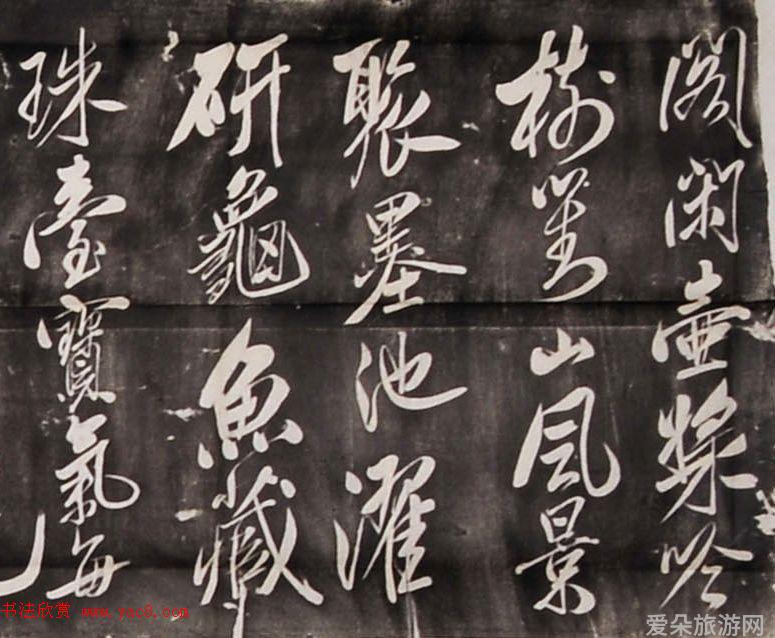 閣閑壺槳吟
樹對山風景
聚墨池濯
研龜魚藏
珠臺寶氣每
书法欣赏 www.yac8.com
爱朵旅游网